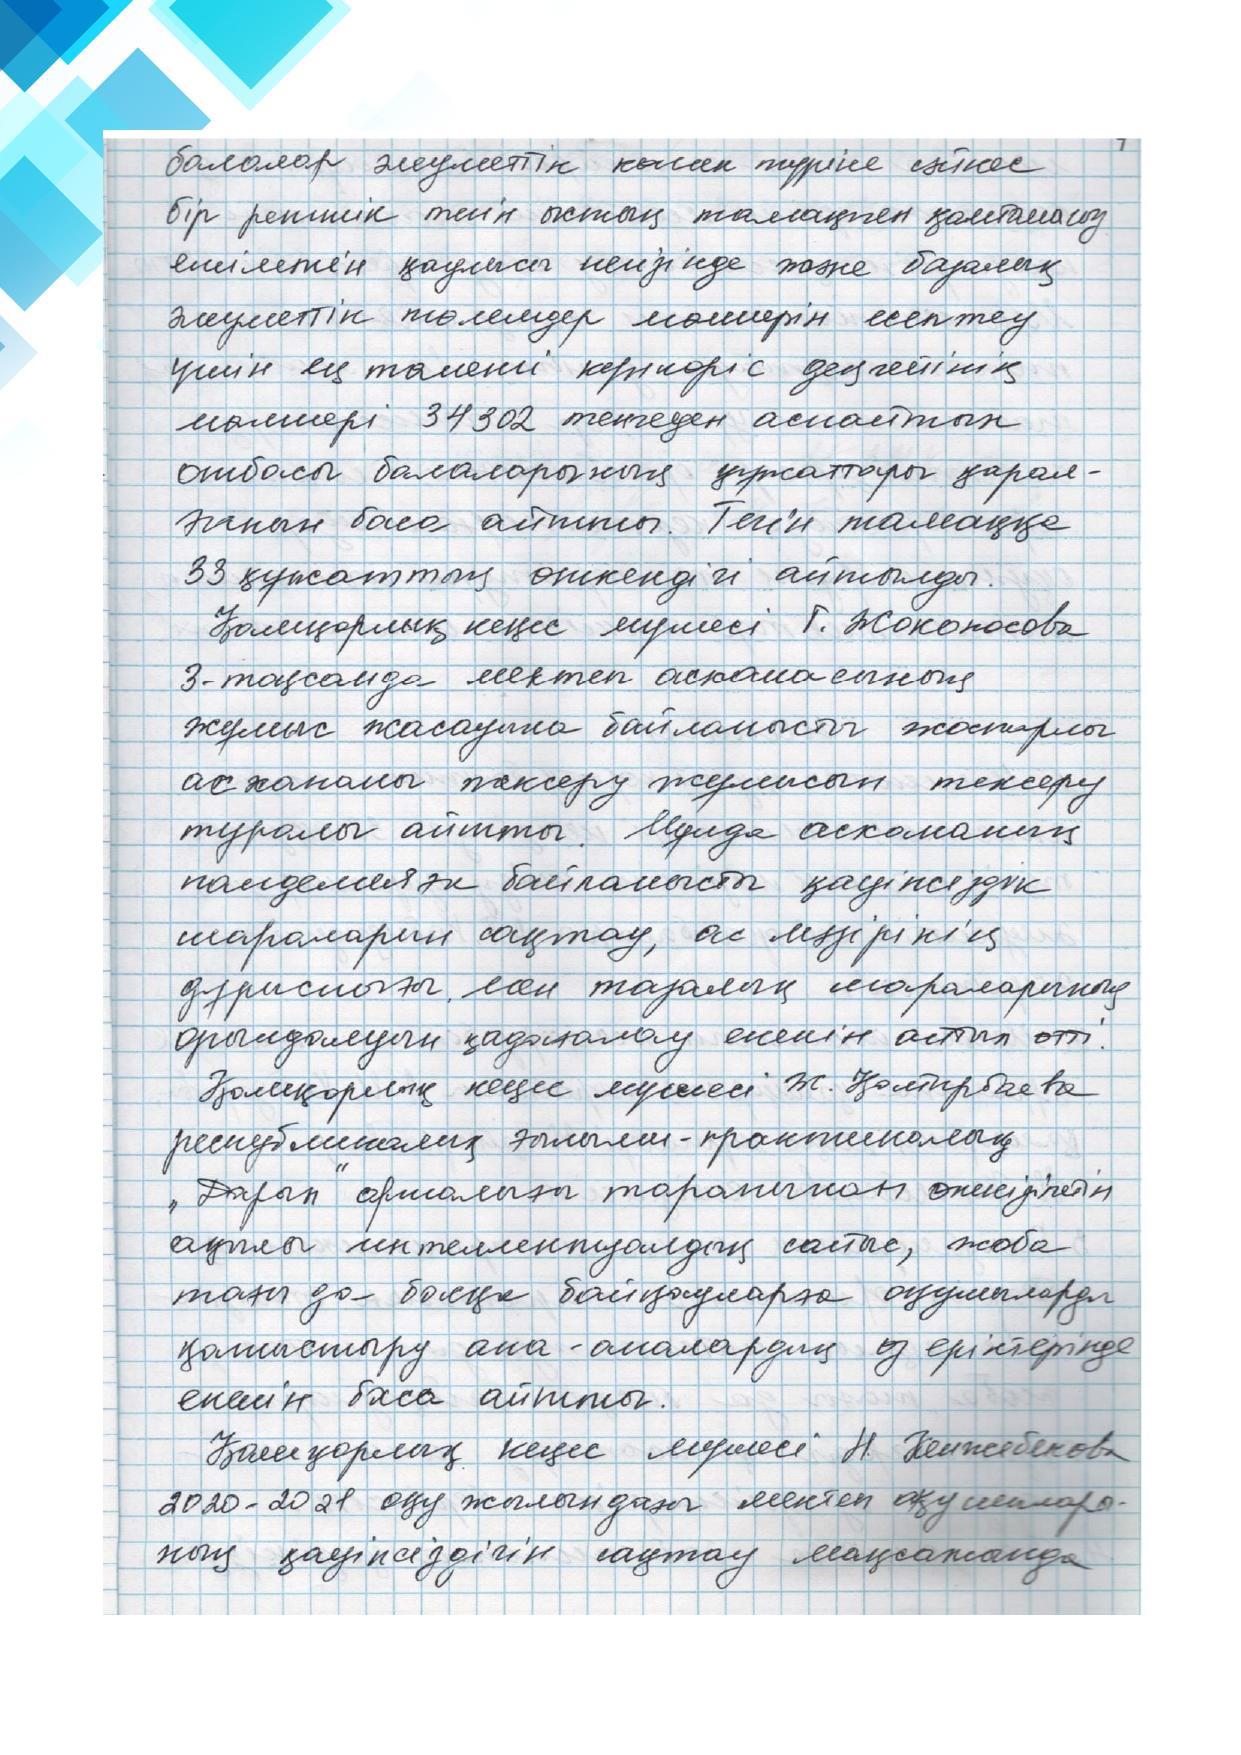 балалар әлеуметтік көмек түріне сәйкес
бір реттік тегін ыстық тамақпен қамтамасыз
етілетін қаулысы негізінде және базалық
әлеуметтік төлемдер мөлшерін есептеу
үшін ең төменгі күнкөріс деңгейінің
мөлшері 34302 теңгеден аспайтын
отбасы балаларының құжаттары қарал-
ғанын баса айтты. Тегін тамаққа
33 құжаттың өткендігі айтылды.
Қамқорлық кеңес мүшесі Г. Жоконосова
3-тоқсанда мектеп асханасының
жұмыс жасауына байланысты жоспарлы
асхананы тексеру жұмысын тексеру
туралы айтты. Мұнда асхананың
пандемияға байланысты қауіпсіздік
шараларын сақтау, ас мәзірінің
дұрыстығы мен тазалық шараларының
орындалуын қадағалау екенін айтып өтті.
Қамқорлық кеңес мүшесі Ж. Қантарбаева
республикалық ғылыми-практикалық
„Дарын" орталығы тарапынан өткізілетін
ақылы интеллектуалдық сайыс, жоба
тағы да басқа байқауларға оқушыларды
қатыстыру ата-аналардың өз еріктерінде
екенін баса айтты.
Қамқорлық кеңес мүшесі Н. Кенжебекова
2020-2021 оқу жылындағы мектеп оқушылары-
ның қауіпсіздігін сақтау мақсатында